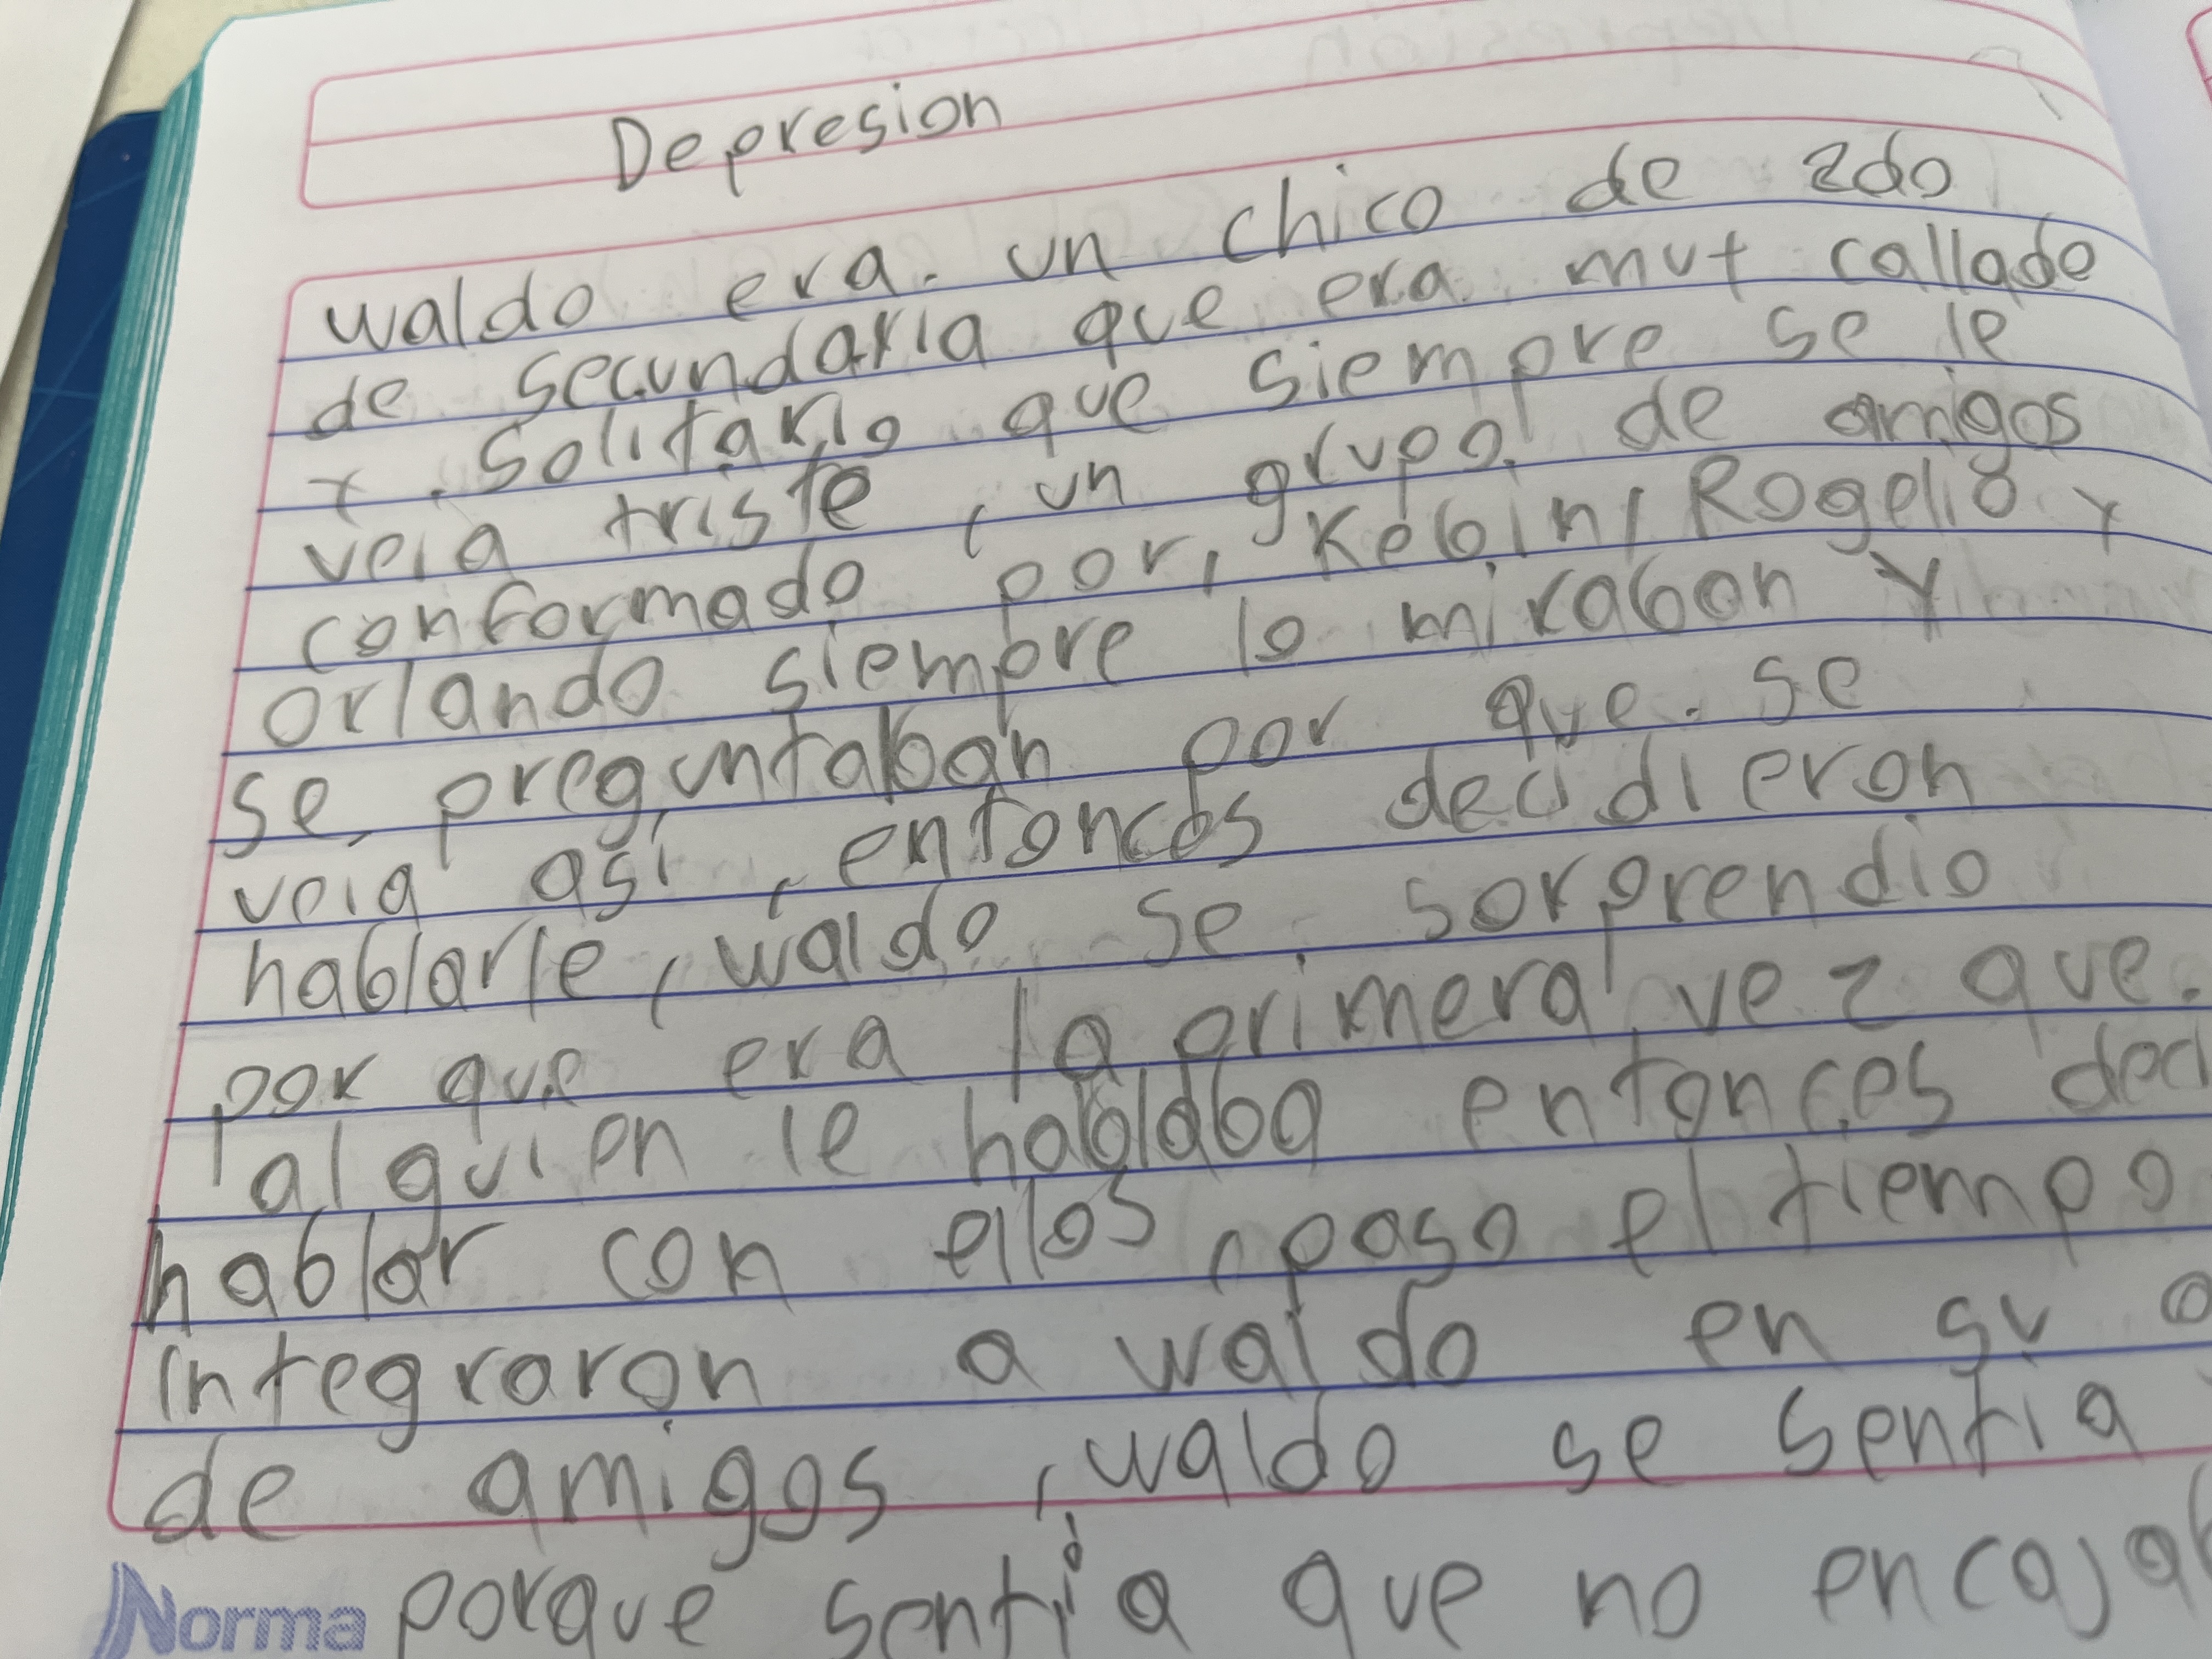 Depresion
waldo era. un chico de 2do
de secundaria que era muy callado
y . solitario que siempre se le
veia triste, un grupo de amigos
conformado por, Kebin, Rogelio y
orlando siempre lo miraban y
se preguntaban por que. se
veia asi, entonces decidieron
hablarle, waldo se sorprendio
por que era la primera vez que.
alguien le hablaba entonces deci
hablar con ellos, paso el tiempo
integraron a waldo en su
de amigos, waldo se sentia
Norma porque sentia que no encajab